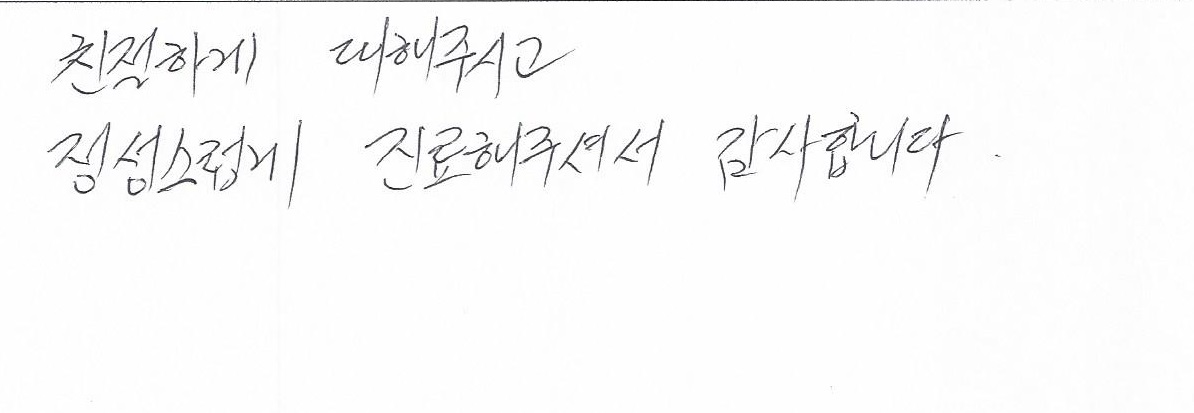 친절하게 대해주시고
정성스럽게 진료해주셔서 감사합니다.